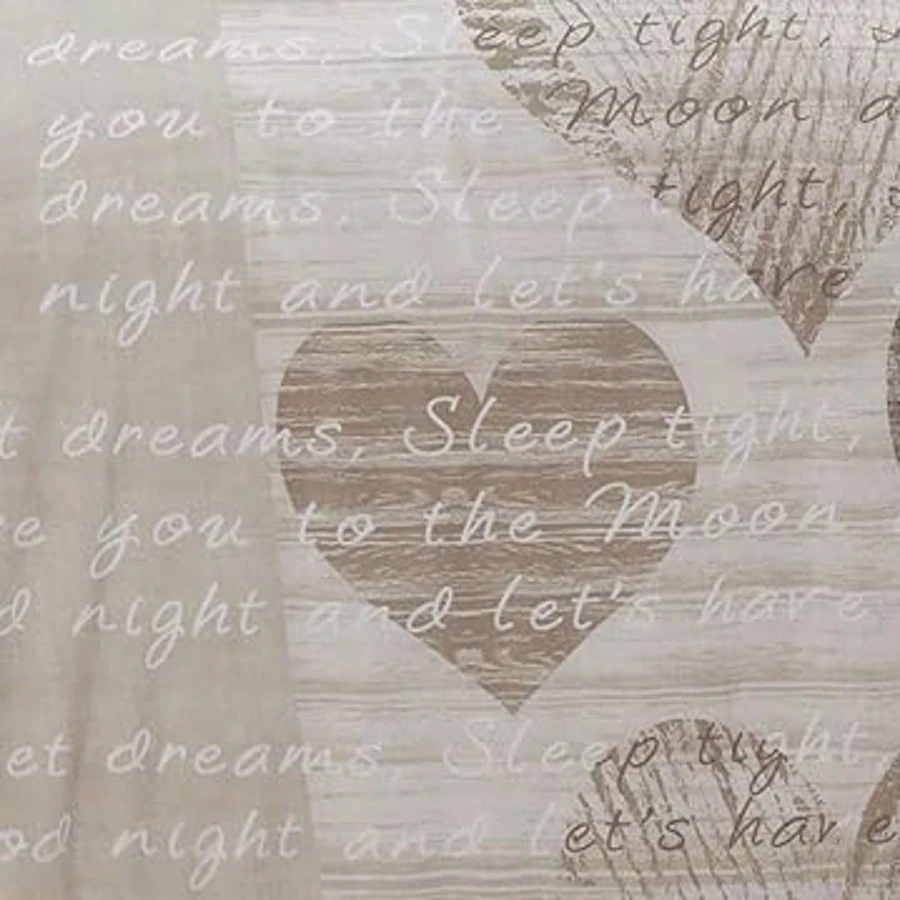 dreams, Sleep tight,
you to the Moon a
dreams, Sleep tight,
night and let's have
t dreams, Sleep tight,
e you to the Moon
d night and let's have
et dreams, Sleep tight
od night and let's have